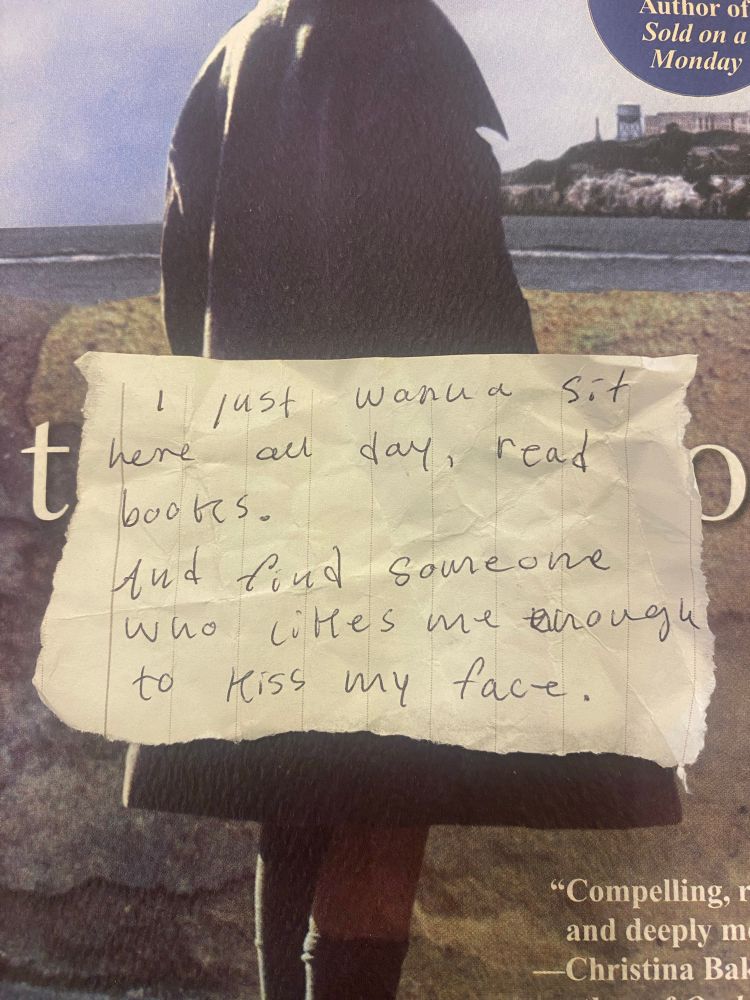 Author of
Sold on a
Monday
t
o
I just wanna sit
here all day, read
books.
And find someone
who likes me enough
to kiss my face.
“Compelling, r
and deeply m
—Christina Bak